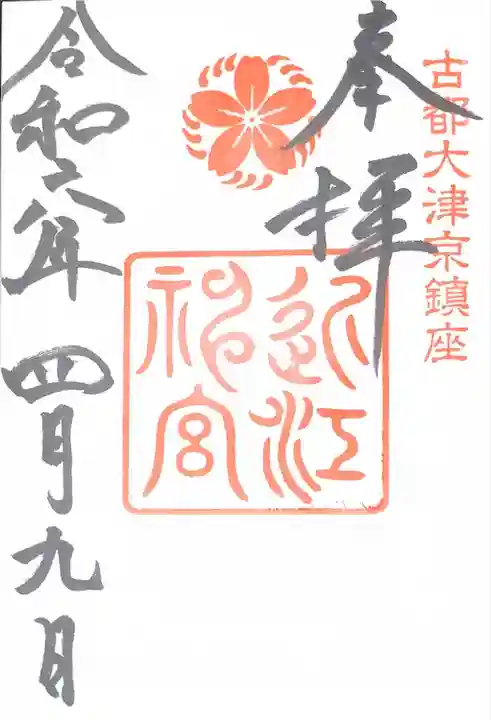 古都大津京鎮座
奉拝
近江
神宮
令和六年四月九日